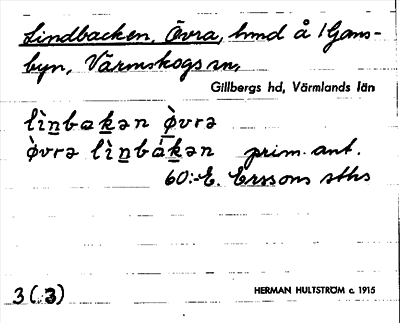 Lindbacken, Övra, hmd å 1 Gams-
byn, Värmskogs sn,
Gillbergs hd, Värmlands län
lìnbakən ò̤vrə
ò̤vrə lìnbákən prim. ant.
60:- E. Erssons sths
3 (.3)
HERMAN HULTSTRÖM c. 1915